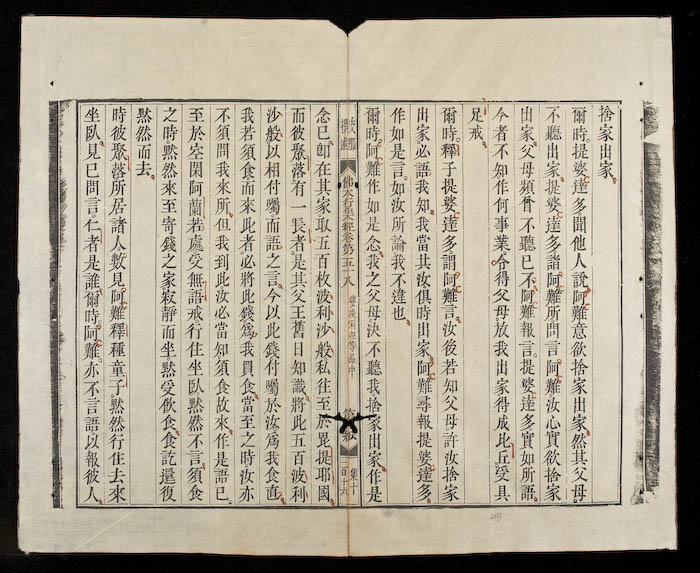 捨家出家
爾時提婆達多聞他人說阿難意欲捨家出家然其父母
不聽出家提婆達多詣阿難所問言阿難汝心實欲捨家
出家父母頻曾不聽已不阿難報言提婆達多實如所語
今者不知作何事業令得父母放我出家得成比丘受具
足戒
爾時釋子提婆達多謂阿難言汝後若知父母許汝捨家
出家必語我知我當共汝俱時出家阿難尋報提婆達多
作如是言如汝所論我不違也
爾時阿難作如是念我之父母決不聽我捨家出家作是
佛本行集經卷第五十八
集十
百十六
念已卽在其家取五百枚波利沙般私往至於毘提耶國
而彼聚落有一長者是其父王舊日知識將此五百波利
沙般以相付囑而語之言今以此錢付囑於汝爲我食直
我若須食而來此者必將此錢爲我買食當至之時汝亦
不須問我來所但我到此汝必當知須食故來作是語已
至於空閑阿蘭若處受無語戒行住坐臥默然不言須食
之時默然來至寄錢之家寂靜而坐默受飮食食訖還復
默然而去
時彼聚落所居諸人數見阿難釋種童子默然行住去來
坐臥見已問言仁者是誰爾時阿難亦不言語以報彼人